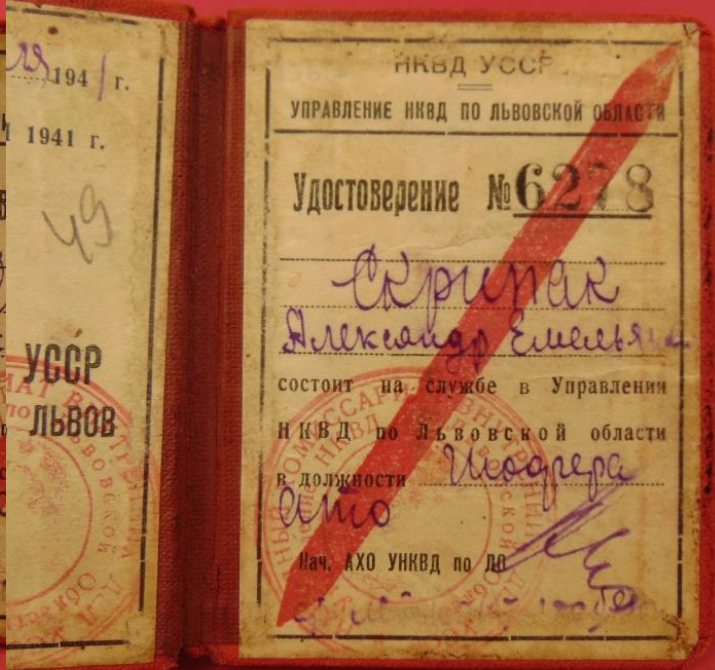 1941 г.
1941 г.
49
УССР
ЛЬВОВ
НКВД УССР
УПРАВЛЕНИЕ НКВД ПО ЛЬВОВСКОЙ ОБЛАСТИ
Удостоверение № 6278
Скрипак
Александр Емельян
состоит на службе в Управлении
НКВД по Львовской области
в должности Шофера
АТО
Нач. АХО УНКВД по ЛО